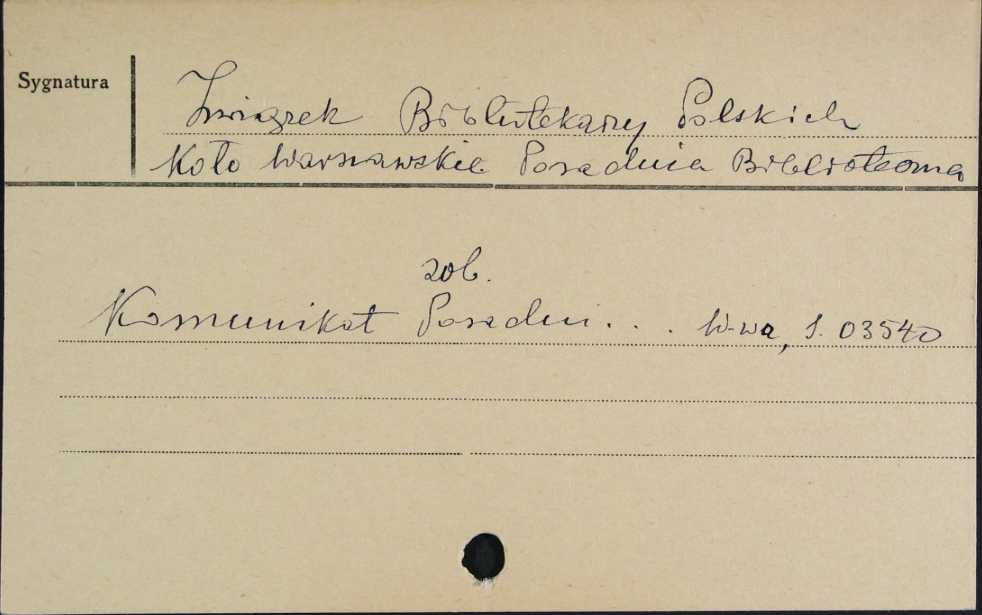 Sygnatura
Związek Bibliotekarzy Polskich
Koło Warszawskie Poradnia Biblioteczna
zob.
Komunikat Poradni . . . W-wa, S. 03540